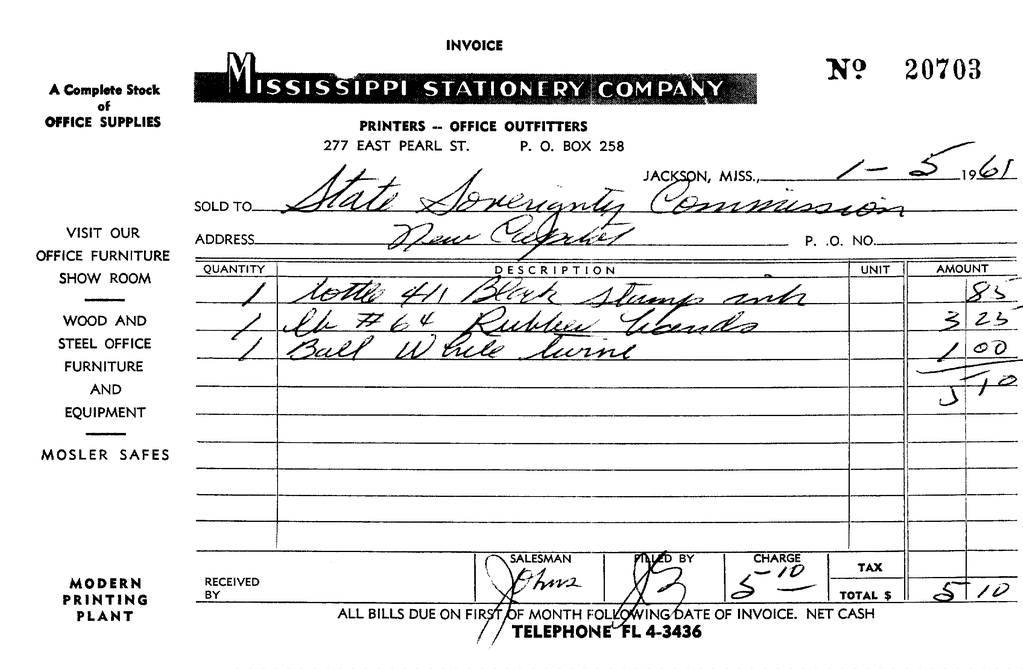 INVOICE
Nº 20703
MISSISSIPPI STATIONERY COMPANY
A Complete Stock
of
OFFICE SUPPLIES
PRINTERS -- OFFICE OUTFITTERS
277 EAST PEARL ST. P. O. BOX 258
JACKSON, MISS., 1-5 1961
SOLD TO State Sovereignty Commission
ADDRESS New Capitol P. O. NO.
VISIT OUR
OFFICE FURNITURE
SHOW ROOM
WOOD AND
STEEL OFFICE
FURNITURE
AND
EQUIPMENT
MOSLER SAFES
QUANTITY DESCRIPTION UNIT AMOUNT
1 bottle 411 Black stamp ink 85
1 lb #64 Rubber bands 3 25
1 Ball White twine 1 00
5 10
MODERN
PRINTING
PLANT
RECEIVED
BY
SALESMAN
Johns
FILLED BY
CHARGE
5-10
TAX
TOTAL $ 5 10
ALL BILLS DUE ON FIRST OF MONTH FOLLOWING DATE OF INVOICE. NET CASH
TELEPHONE FL 4-3436